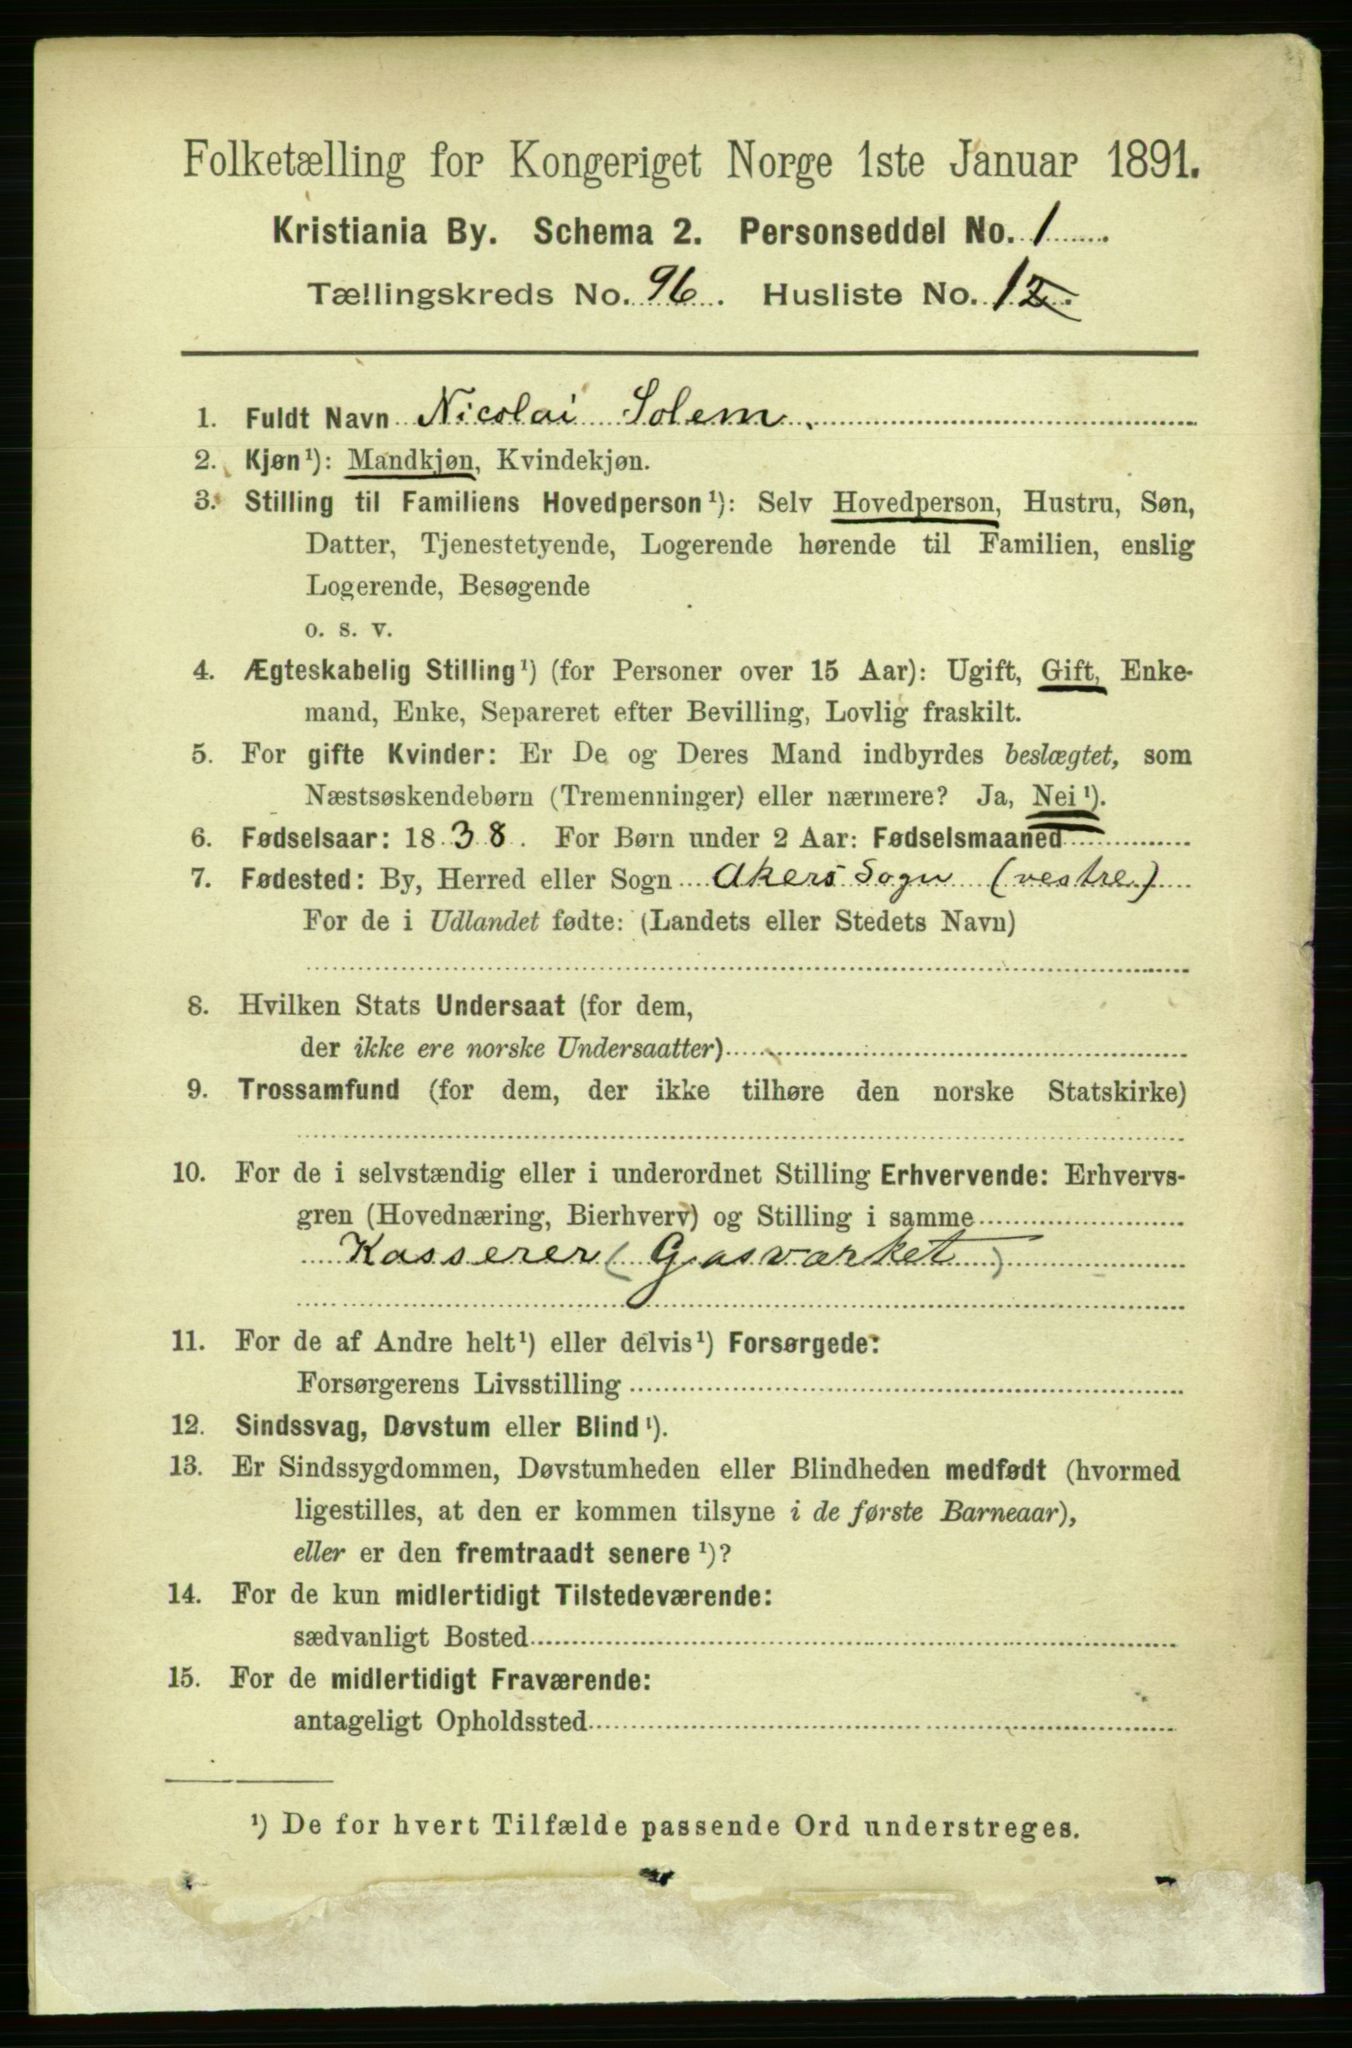 Folketælling for Kongeriget Norge 1ste Januar 1891.
Kristiania By. Schema 2. Personseddel No. 1
Tællingskreds No. 96. Husliste No. 12.
1. Fuldt Navn Nicolai Solem.
2. Kjøn¹): Mandkjøn, Kvindekjøn.
3. Stilling til Familiens Hovedperson¹): Selv Hovedperson, Hustru, Søn,
Datter, Tjenestetyende, Logerende hørende til Familien, enslig
Logerende, Besøgende
o. s. v.
4. Ægteskabelig Stilling¹) (for Personer over 15 Aar): Ugift, Gift, Enke-
mand, Enke, Separeret efter Bevilling, Lovlig fraskilt.
5. For gifte Kvinder: Er De og Deres Mand indbyrdes beslægtet, som
Næstsøskendebørn (Tremenninger) eller nærmere? Ja, Nei¹).
6. Fødselsaar: 1838. For Børn under 2 Aar: Fødselsmaaned
7. Fødested: By, Herred eller Sogn Akers Sogn (vestre)
For de i Udlandet fødte: (Landets eller Stedets Navn)
8. Hvilken Stats Undersaat (for dem,
der ikke ere norske Undersaatter)
9. Trossamfund (for dem, der ikke tilhøre den norske Statskirke)
10. For de i selvstændig eller i underordnet Stilling Erhvervende: Erhvervs-
gren (Hovednæring, Bierhverv) og Stilling i samme
Kasserer (Gasværket)
11. For de af Andre helt¹) eller delvis¹) Forsørgede:
Forsørgerens Livsstilling
12. Sindssvag, Døvstum eller Blind¹).
13. Er Sindssygdommen, Døvstumheden eller Blindheden medfødt (hvormed
ligestilles, at den er kommen tilsyne i de første Barneaar),
eller er den fremtraadt senere¹)?
14. For de kun midlertidigt Tilstedeværende:
sædvanligt Bosted
15. For de midlertidigt Fraværende:
antageligt Opholdssted
¹) De for hvert Tilfælde passende Ord understreges.